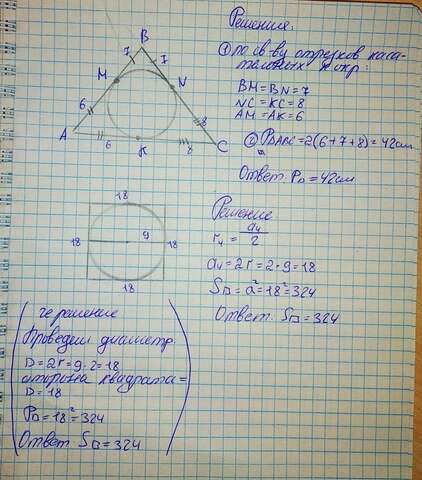 B
7
7
M
N
6
8
A
6
K
8
C
Решение:
① по св-ву отрезков каса-
тельных к окр:
BM=BN=7
NC=KC=8
AM=AK=6
② P△ABC=2(6+7+8)=42см
Ответ: P△=42см
18
18
9
18
18
Решение
r₄=a₄/2
a₄=2r=2·9=18
S□=a²=18²=324
Ответ: S□=324
2е решение
Проведем диаметр
D=2r=9·2=18
сторона квадрата=
D=18
P□=18²=324
Ответ S□=324